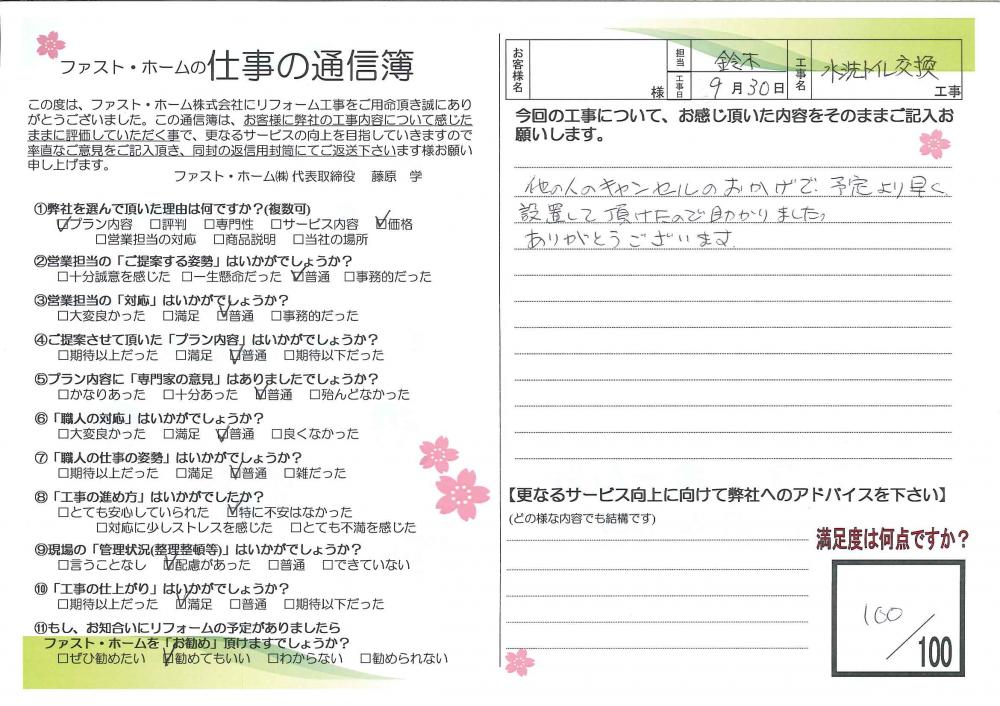 ファスト・ホームの仕事の通信簿
この度は、ファスト・ホーム株式会社にリフォーム工事をご用命頂き誠にあり
がとうございました。この通信簿は、お客様に弊社の工事内容について感じた
ままに評価していただく事で、更なるサービスの向上を目指していきますので
率直なご意見をご記入頂き、同封の返信用封筒にてご返送下さいます様お願い
申し上げます。
ファスト・ホーム㈱ 代表取締役 藤原 学
①弊社を選んで頂いた理由は何ですか?(複数可)
☑プラン内容 □評判 □専門性 □サービス内容 ☑価格
□営業担当の対応 □商品説明 □当社の場所
②営業担当の「ご提案する姿勢」はいかがでしょうか?
□十分誠意を感じた □一生懸命だった ☑普通 □事務的だった
③営業担当の「対応」はいかがでしょうか?
□大変良かった □満足 ☑普通 □事務的だった
④ご提案させて頂いた「プラン内容」はいかがでしょうか?
□期待以上だった □満足 ☑普通 □期待以下だった
⑤プラン内容に「専門家の意見」はありましたでしょうか?
□かなりあった □十分あった ☑普通 □殆んどなかった
⑥「職人の対応」はいかがでしょうか?
□大変良かった □満足 ☑普通 □良くなかった
⑦「職人の仕事の姿勢」はいかがでしょうか?
□期待以上だった □満足 ☑普通 □雑だった
⑧「工事の進め方」はいかがでしたか?
□とても安心していられた ☑特に不安はなかった
□対応に少しストレスを感じた □とても不満を感じた
⑨現場の「管理状況(整理整頓等)」はいかがでしょうか?
□言うことなし ☑配慮があった □普通 □できていない
⑩「工事の仕上がり」はいかがでしょうか?
□期待以上だった ☑満足 □普通 □期待以下だった
⑪もし、お知合いにリフォームの予定がありましたら
ファスト・ホームを「お勧め」頂けますでしょうか?
□ぜひ勧めたい ☑勧めてもいい □わからない □勧められない
お客様名 様 担当 鈴木 工事日 9月30日 工事名 水洗トイレ交換 工事
今回の工事について、お感じ頂いた内容をそのままご記入お
願いします。
他の人のキャンセルのおかげで、予定より早く
設置して頂けたので助かりました。
ありがとうございます
【更なるサービス向上に向けて弊社へのアドバイスを下さい】
(どの様な内容でも結構です)
満足度は何点ですか?
100/100